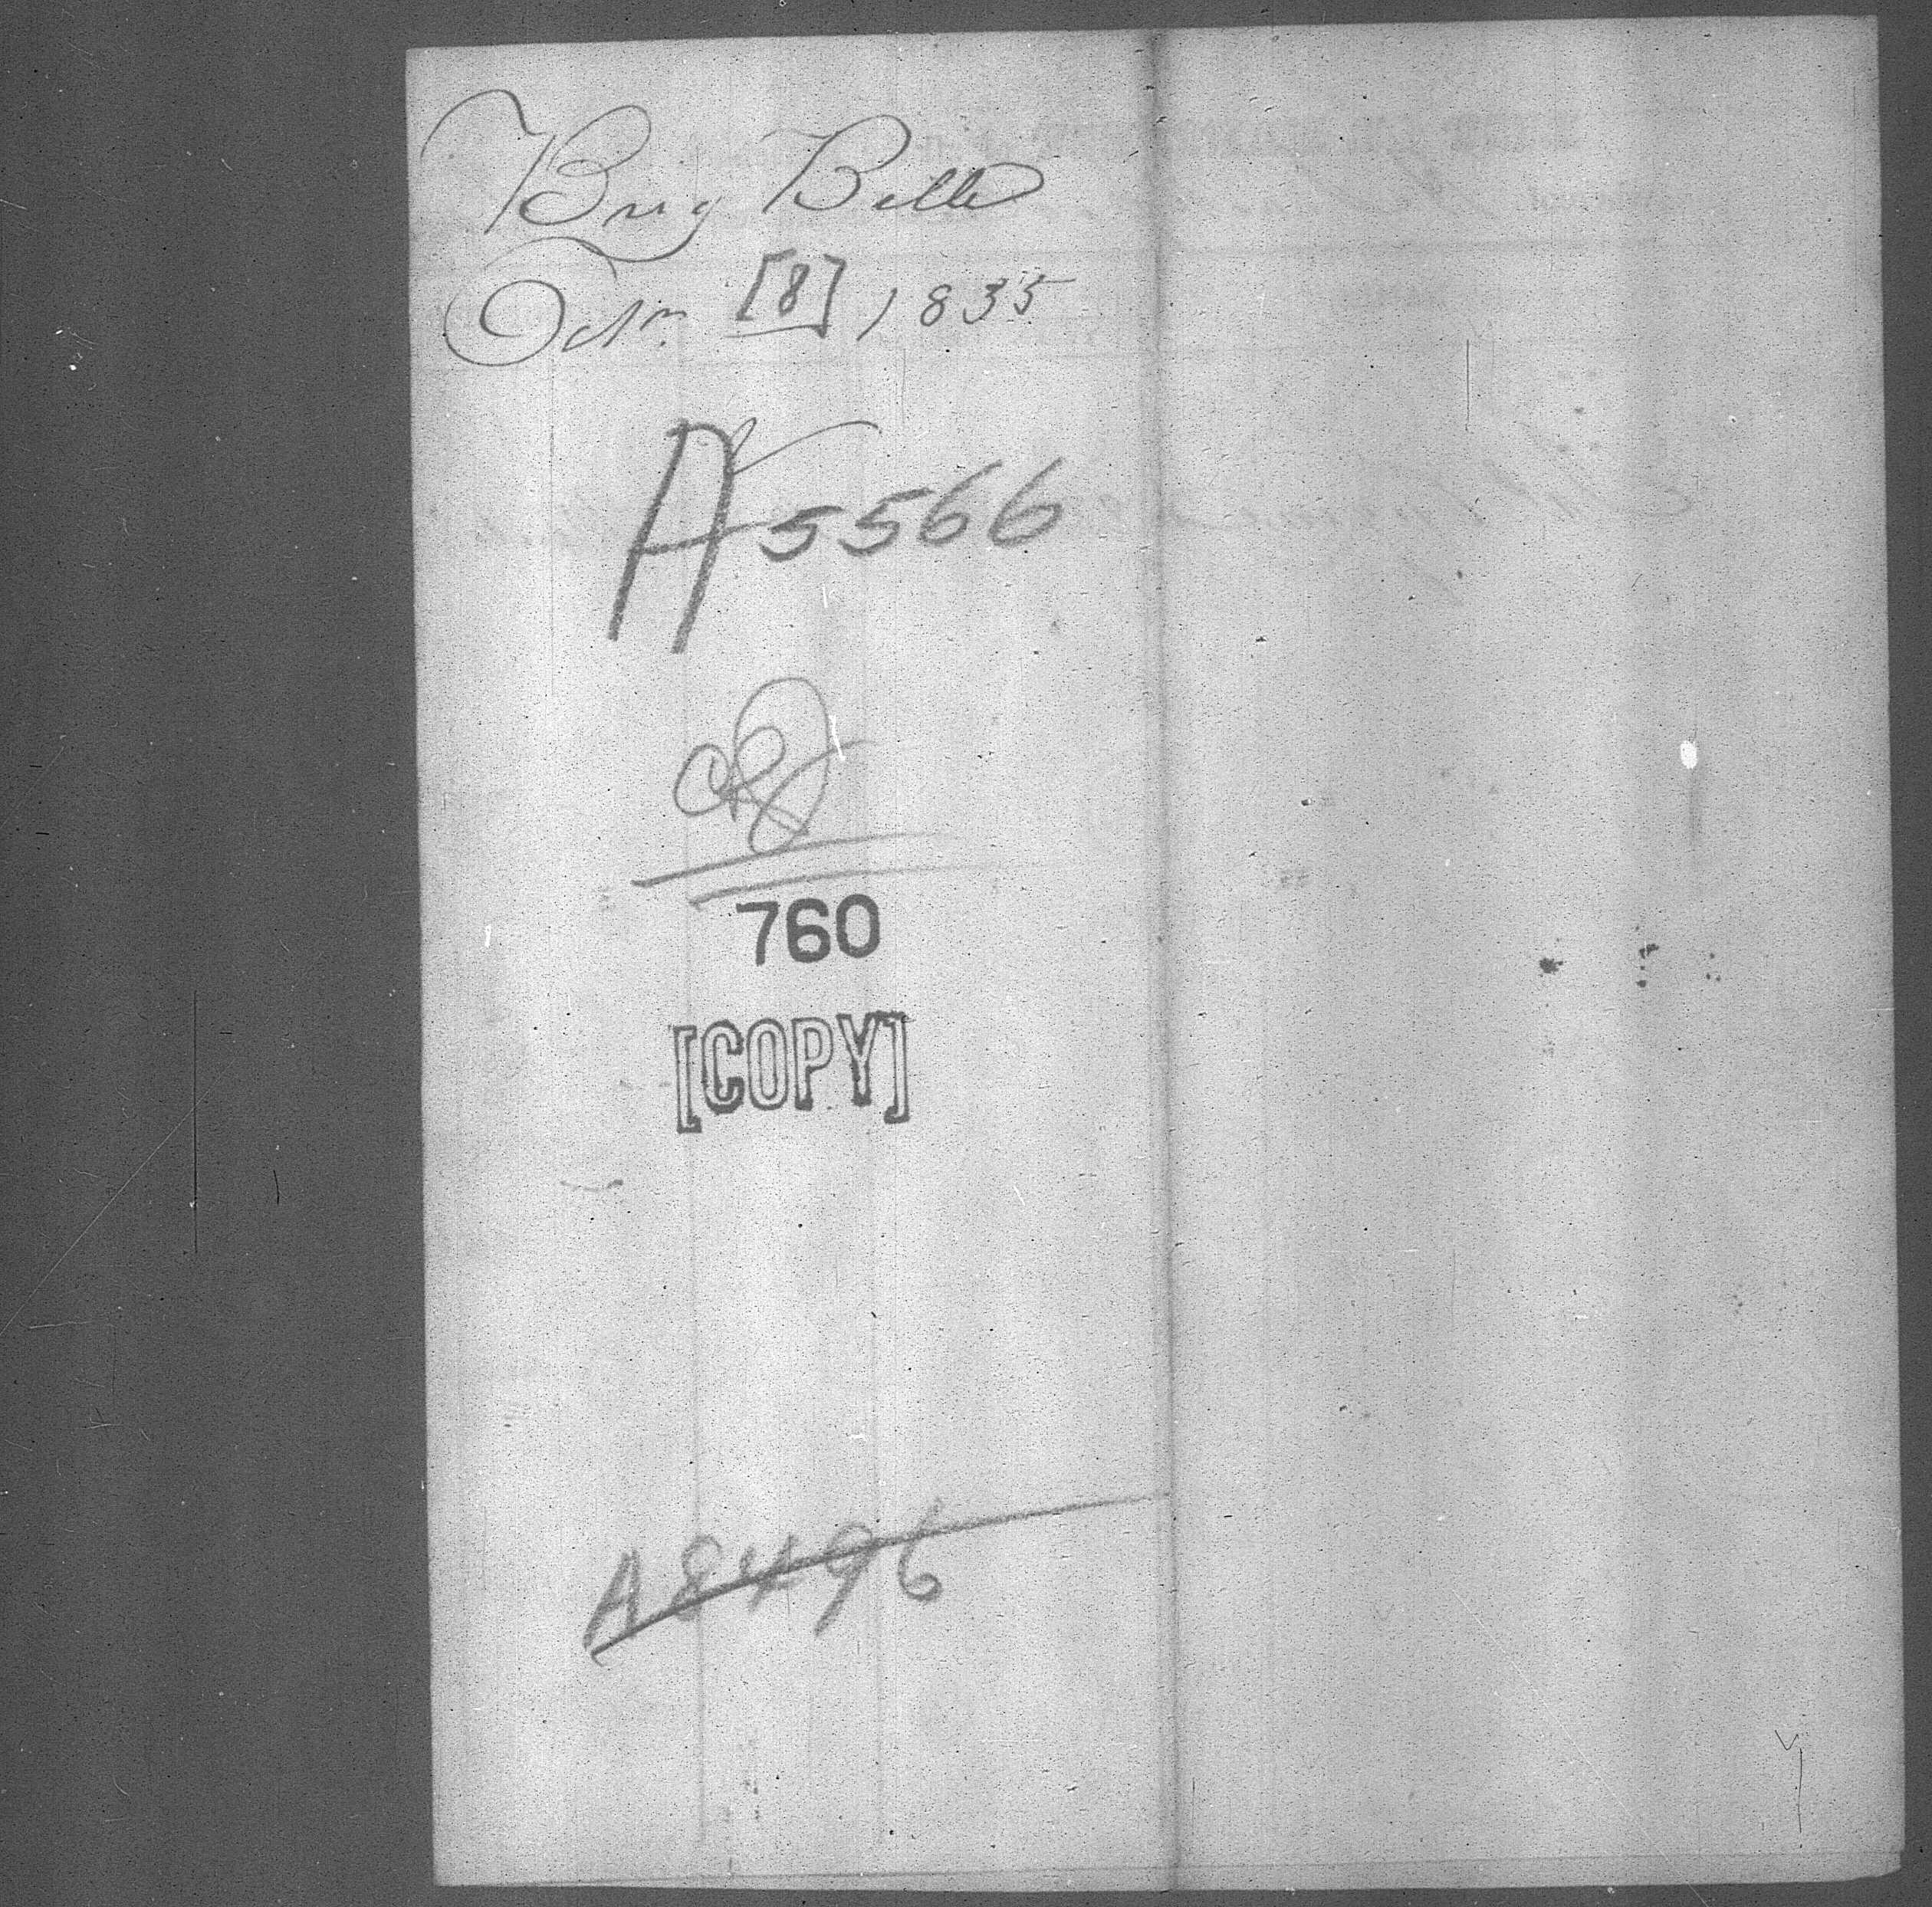 Brig Belle
Octr. [8] 1835
A 5566
760
[COPY]
A8496